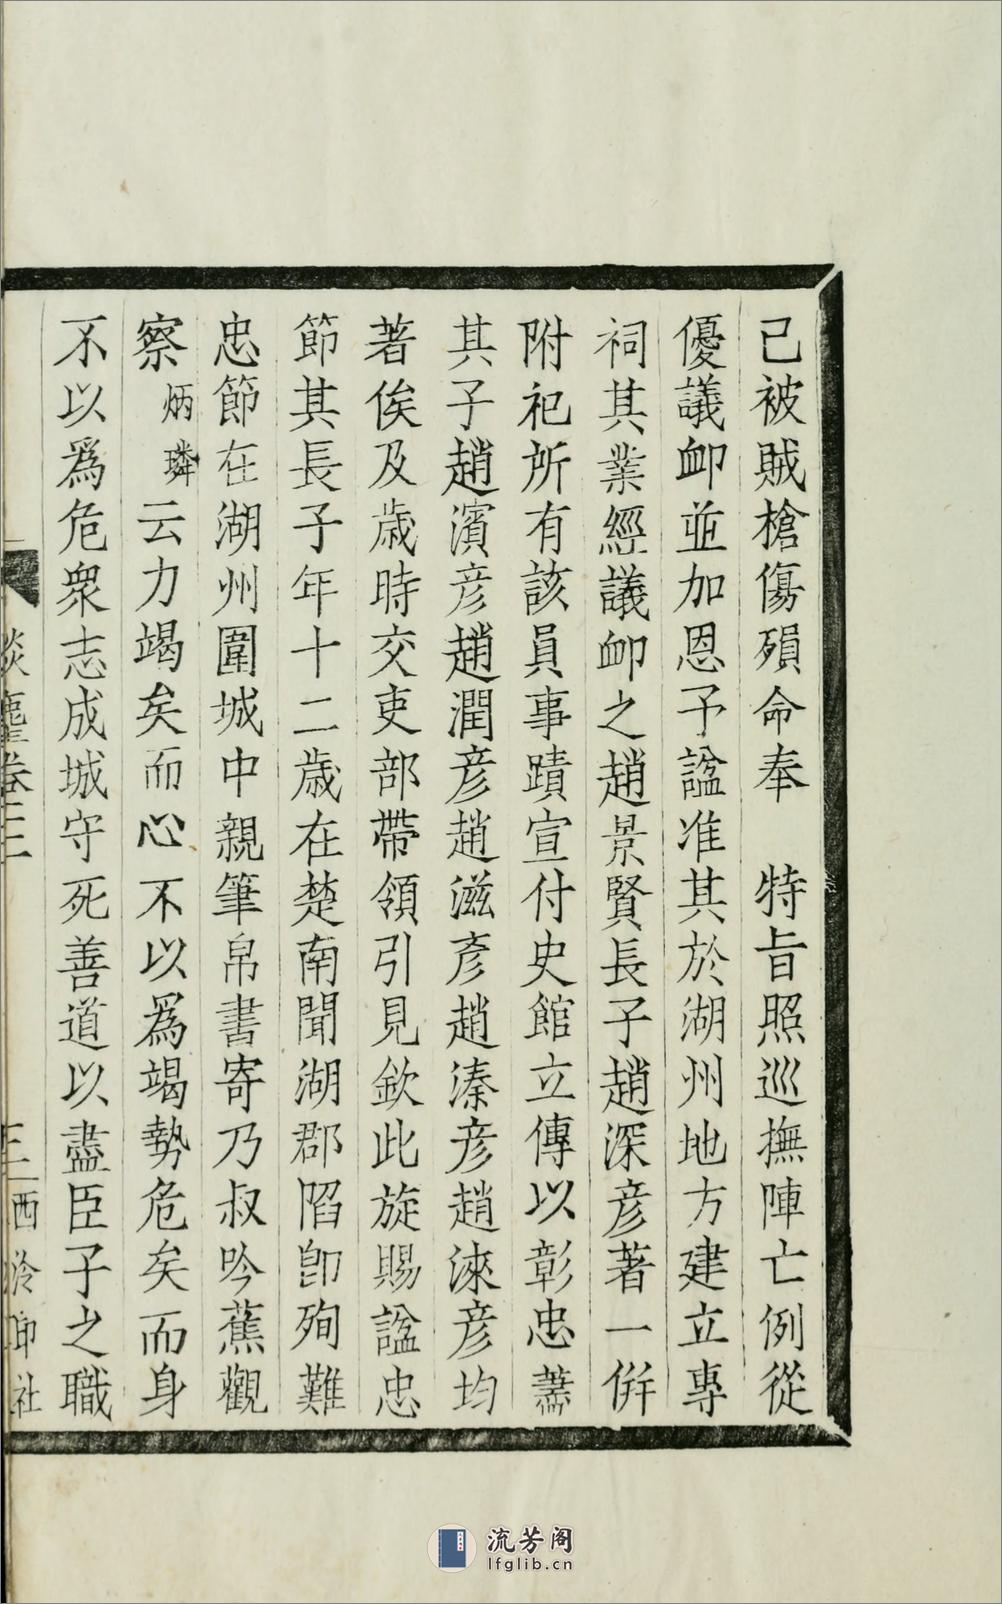 已被賊槍傷殞命奉　特旨照巡撫陣亡例從
優議卹並加恩予諡准其於湖州地方建立專
祠其業經議卹之趙景賢長子趙深彥著一併
附祀所有該員事蹟宣付史館立傳以彰忠藎
其子趙濱彥趙潤彥趙滋彥趙溱彥趙淶彥均
著俟及歲時交吏部帶領引見欽此旋賜諡忠
節其長子年十二歲在楚南聞湖郡陷卽殉難
忠節在湖州圍城中親筆帛書寄乃叔吟蕉觀
察炳璘云力竭矣而心不以爲竭勢危矣而身
不以爲危衆志成城守死善道以盡臣子之職
談麈卷三
三
西泠印社
流芳阁
lfglib.cn